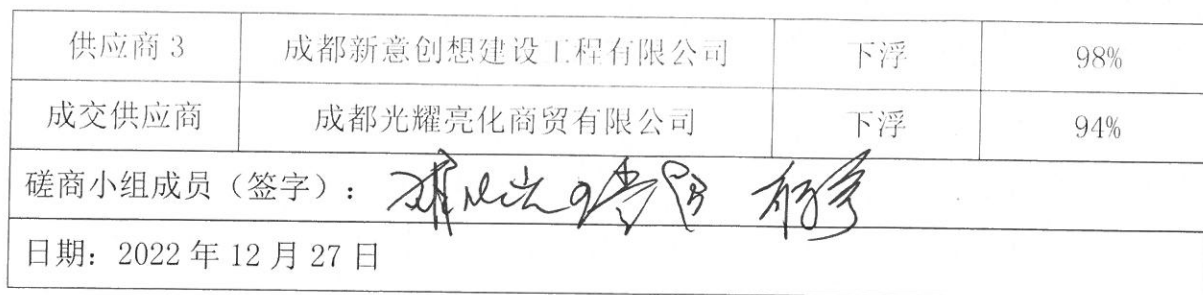 供应商 3 成都新意创想建设工程有限公司 下浮 98%
成交供应商 成都光耀亮化商贸有限公司 下浮 94%
磋商小组成员（签字）：
日期：2022 年 12 月 27 日